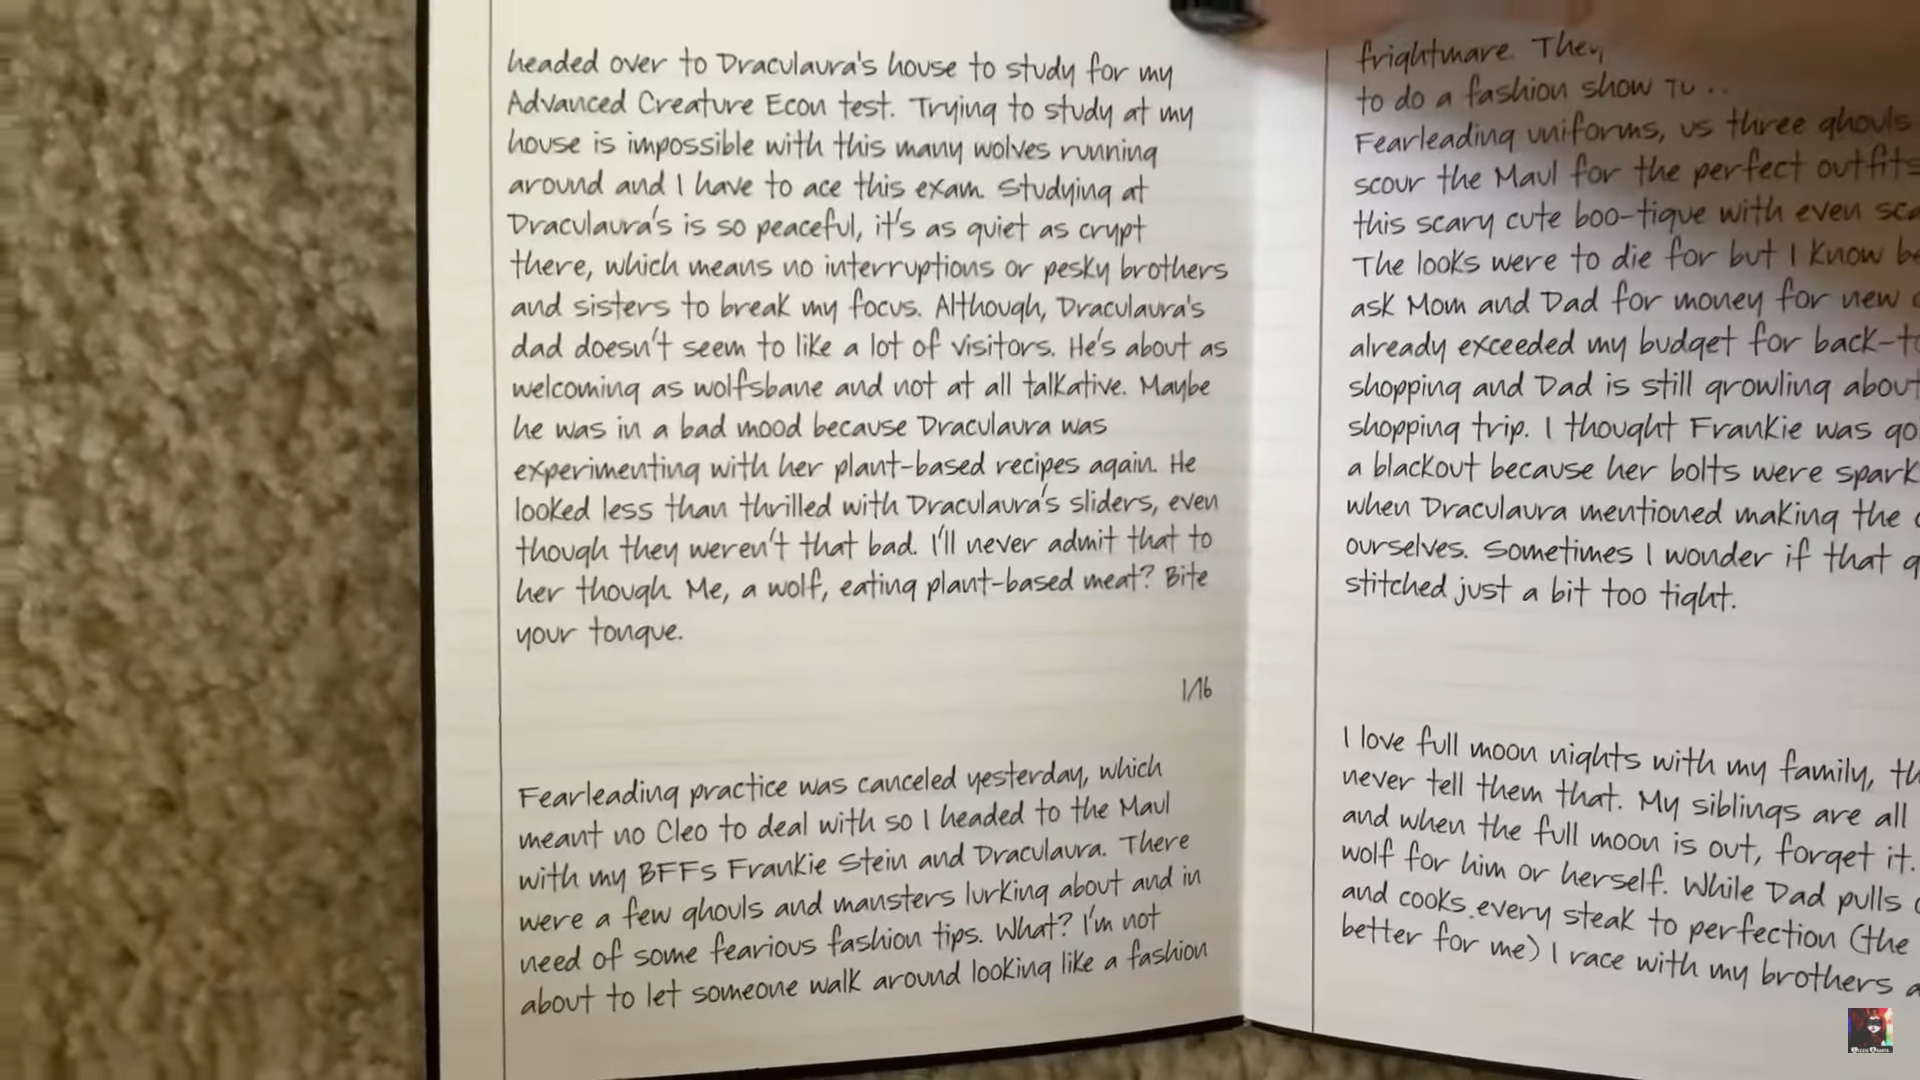 headed over to Draculaura's house to study for my
Advanced Creature Econ test. Trying to study at my
house is impossible with this many wolves running
around and I have to ace this exam. Studying at
Draculaura's is so peaceful, it's as quiet as crypt
there, which means no interruptions or pesky brothers
and sisters to break my focus. Although, Draculaura's
dad doesn't seem to like a lot of visitors. He's about as
welcoming as wolfsbane and not at all talkative. Maybe
he was in a bad mood because Draculaura was
experimenting with her plant-based recipes again. He
looked less than thrilled with Draculaura's sliders, even
though they weren't that bad. I'll never admit that to
her though. Me, a wolf, eating plant-based meat? Bite
your tongue.
1/16
Fearleading practice was canceled yesterday, which
meant no Cleo to deal with so I headed to the Maul
with my BFFs Frankie Stein and Draculaura. There
were a few ghouls and mansters lurking about and in
need of some fearious fashion tips. What? I'm not
about to let someone walk around looking like a fashion
frightmare. They
to do a fashion show
Fearleading uniforms, us three ghouls
scour the Maul for the perfect outfits
this scary cute boo-tique with even
The looks were to die for but I know
ask Mom and Dad for money for new
already exceeded my budget for
shopping and Dad is still growling about
shopping trip. I thought Frankie was
a blackout because her bolts were
when Draculaura mentioned making the
ourselves. Sometimes I wonder if that
stitched just a bit too tight.
I love full moon nights with my family,
never tell them that. My siblings are all
and when the full moon is out, forget it.
wolf for him or herself. While Dad pulls
and cooks every steak to perfection (the
better for me) I race with my brothers